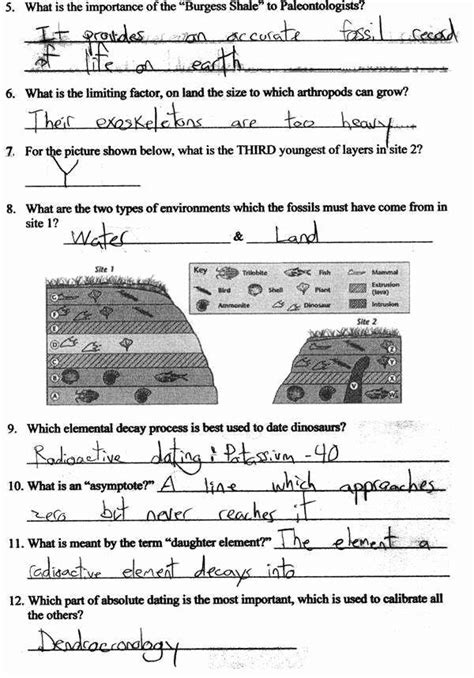 5. What is the importance of the “Burgess Shale” to Paleontologists?
It provides an accurate fossil record
of life on earth
6. What is the limiting factor, on land the size to which arthropods can grow?
Their exoskeletons are too heavy
7. For the picture shown below, what is the THIRD youngest of layers in site 2?
Y
8. What are the two types of environments which the fossils must have come from in
site 1?
Water & Land
Site 1
Key Trilobite Fish Mammal
Bird Shell Plant Extrusion (lava)
Ammonite Dinosaur Intrusion
Site 2
G
F
E
D
C
B
A
Z
Y
X
W
9. Which elemental decay process is best used to date dinosaurs?
Radioactive dating: Potassium -40
10. What is an “asymptote?” A line which approaches
zero but never reaches it
11. What is meant by the term “daughter element?” The element a
radioactive element decays into
12. Which part of absolute dating is the most important, which is used to calibrate all
the others?
Dendrocronology